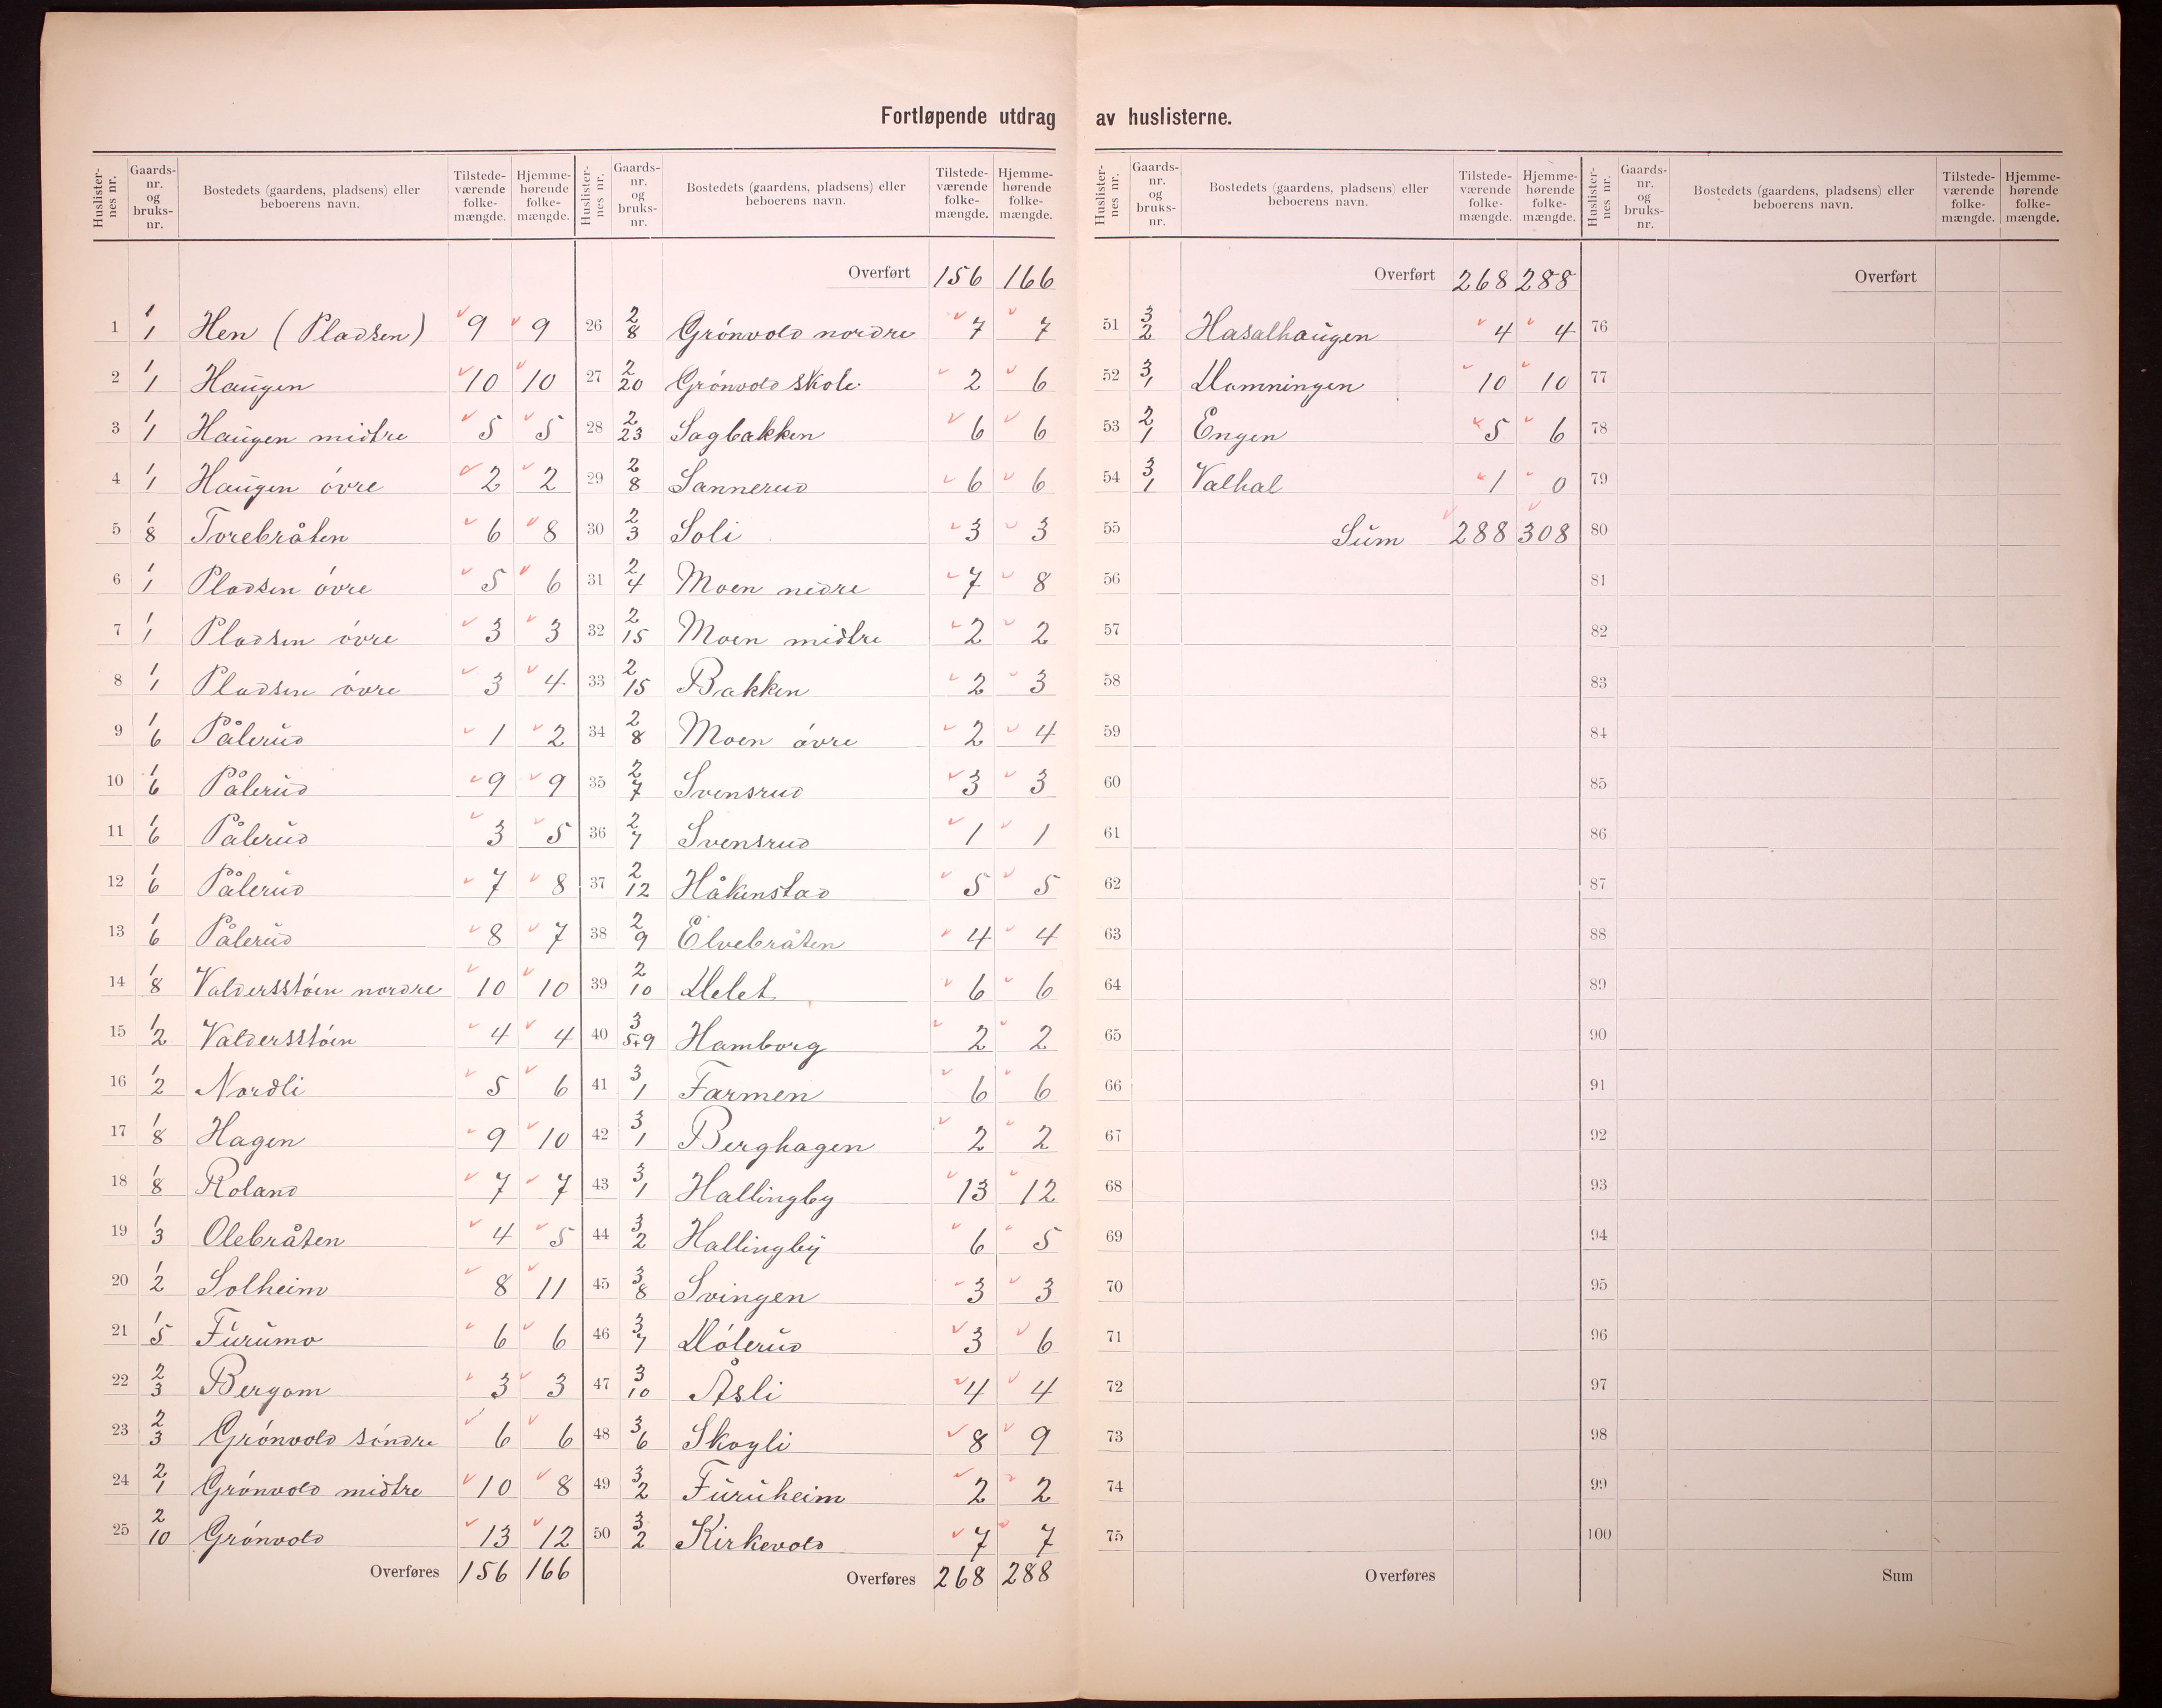 Fortløpende utdrag av huslisterne.
Huslister-nes nr. Gaards-nr. og bruks-nr. Bostedets (gaardens, pladsens) eller beboerens navn. Tilstede-værende folke-mængde. Hjemme-hørende folke-mængde.
1 1/1 Hen (Pladsen) 9 9
2 1/1 Haugen 10 10
3 1/1 Haugen midtre 5 5
4 1/1 Haugen óvre 2 2
5 1/8 Torebråten 6 8
6 1/1 Pladsen óvre 5 6
7 1/1 Pladsen óvre 3 3
8 1/1 Pladsen óvre 3 4
9 1/6 Pålerud 1 2
10 1/6 Pålerud 9 9
11 1/6 Pålerud 3 5
12 1/6 Pålerud 7 8
13 1/6 Pålerud 8 7
14 1/8 Valdersstóen nordre 10 10
15 1/2 Valdersstóen 4 4
16 1/2 Nordli 5 6
17 1/8 Hagen 9 10
18 1/8 Roland 7 7
19 1/3 Olebråten 4 5
20 1/2 Solheim 8 11
21 1/5 Furumo 6 6
22 2/3 Bergom 3 3
23 2/3 Grónvold sóndre 6 6
24 2/1 Grónvold midtre 10 8
25 2/10 Grónvold 13 12
Overføres 156 166
Huslister-nes nr. Gaards-nr. og bruks-nr. Bostedets (gaardens, pladsens) eller beboerens navn. Tilstede-værende folke-mængde. Hjemme-hørende folke-mængde.
Overført 156 166
26 2/8 Grónvold nordre 7 7
27 2/20 Grónvold skole 2 6
28 2/23 Sagbakken 6 6
29 2/8 Sannerud 6 6
30 2/3 Soli 3 3
31 2/4 Moen nedre 7 8
32 2/15 Moen midtre 2 2
33 2/15 Bakken 2 3
34 2/8 Moen óvre 2 4
35 2/7 Svensrud 3 3
36 2/7 Svensrud 1 1
37 2/12 Håkenstad 5 5
38 2/9 Elvebråten 4 4
39 2/10 6 6
40 3/5+9 Hamborg 2 2
41 3/1 Farmen 6 6
42 3/1 Berghagen 2 2
43 3/1 Hallingby 13 12
44 3/2 Hallingby 6 5
45 3/8 Svingen 3 3
46 3/7 3 6
47 3/10 Åsli 4 4
48 3/6 Skogli 8 9
49 3/2 Furuheim 2 2
50 3/2 Kirkevold 7 7
Overføres 268 288
Huslister-nes nr. Gaards-nr. og bruks-nr. Bostedets (gaardens, pladsens) eller beboerens navn. Tilstede-værende folke-mængde. Hjemme-hørende folke-mængde.
Overført 268 288
51 3/2 Hasalhaugen 4 4
52 3/1 10 10
53 2/1 Engen 5 6
54 3/1 Valhal 1 0
55 Sum 288 308
56
57
58
59
60
61
62
63
64
65
66
67
68
69
70
71
72
73
74
75
Overføres
Huslister-nes nr. Gaards-nr. og bruks-nr. Bostedets (gaardens, pladsens) eller beboerens navn. Tilstede-værende folke-mængde. Hjemme-hørende folke-mængde.
Overført
76
77
78
79
80
81
82
83
84
85
86
87
88
89
90
91
92
93
94
95
96
97
98
99
100
Sum